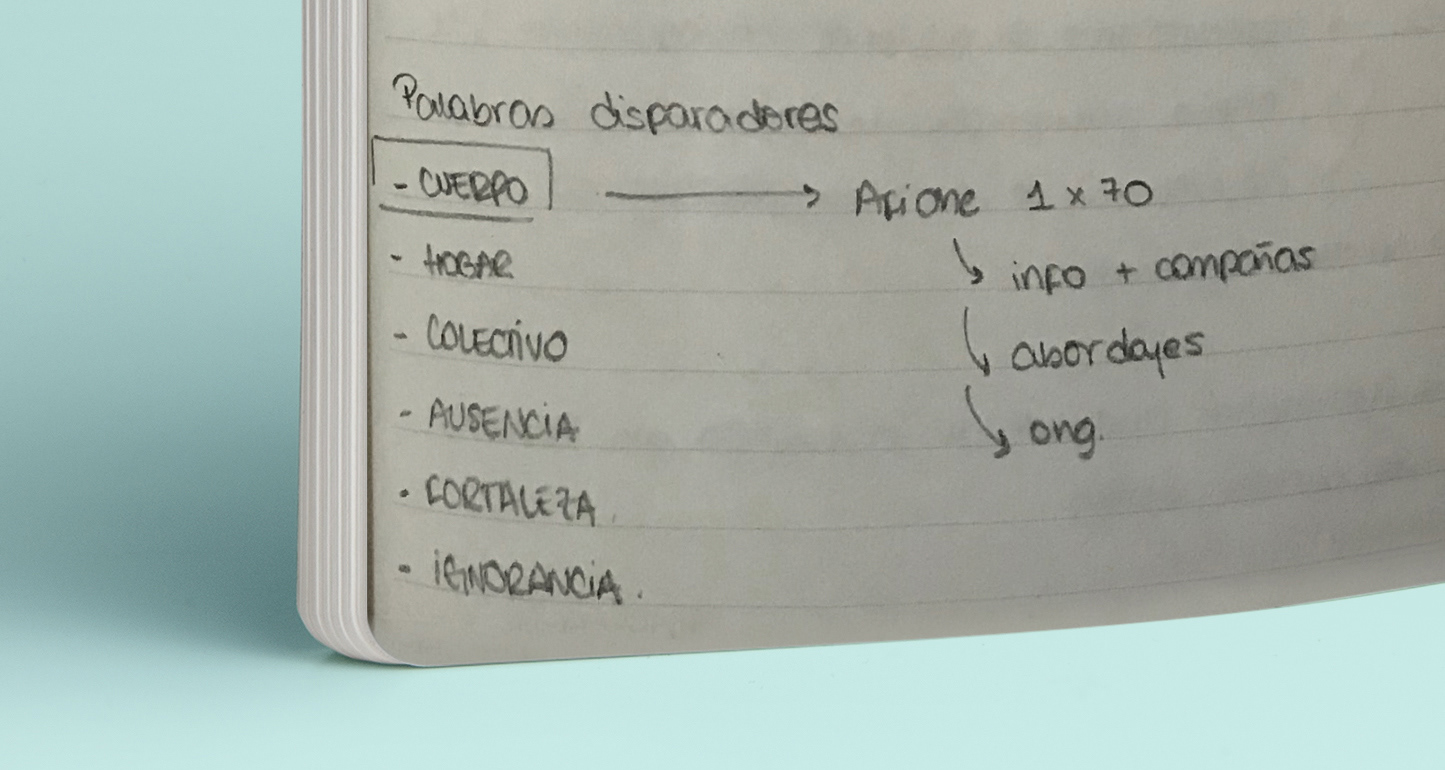 Palabras disparadores
- CUERPO → Afiche 1 x 70
- HOGAR ↳ info + campañas
- COLECTIVO ↳ abordajes
- AUSENCIA ↳ ong.
- FORTALEZA
- IGNORANCIA.